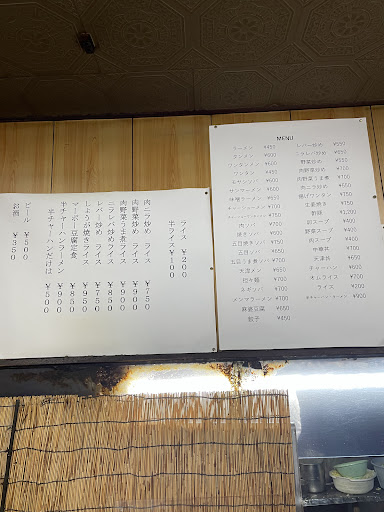 MENU
ラーメン ¥450
タンメン ¥600
ワンタンメン ¥600
モヤシソバ ¥600
サンマーメン ¥650
味噌ラーメン ¥650
チャーシューメン ¥700
肉ソバ ¥700
焼きソバ ¥700
五目焼きソバ ¥750
五目ソバ ¥850
五目うま煮ソバ ¥700
天津メン ¥750
担々麺 ¥700
ネギソバ ¥700
メンマラーメン ¥700
麻婆豆腐 ¥650
餃子 ¥450
レバー炒め ¥550
ニラレバ炒め ¥650
野菜炒め ¥550
肉野菜炒め ¥700
肉野菜うま煮 ¥700
肉ニラ炒め ¥550
揚げワンタン ¥550
生姜焼き ¥750
酢豚 ¥1,200
卵スープ ¥400
野菜スープ ¥400
肉スープ ¥400
中華丼 ¥700
天津丼 ¥650
チャーハン ¥600
オムライス ¥700
ライス ¥200
半チャーハンラーメン ¥900
ライス ¥200
半ライス ¥100
肉ニラ炒め ライス ¥750
肉野菜炒め ライス ¥900
肉野菜うま煮ライス ¥900
ニラレバ炒めライス ¥850
レバー炒め ライス ¥750
しょうが焼きライス ¥950
マーボー豆腐定食 ¥850
半チャーハンラーメン ¥900
半チャーハンだけは ¥500
ビール ¥500
お酒 ¥350